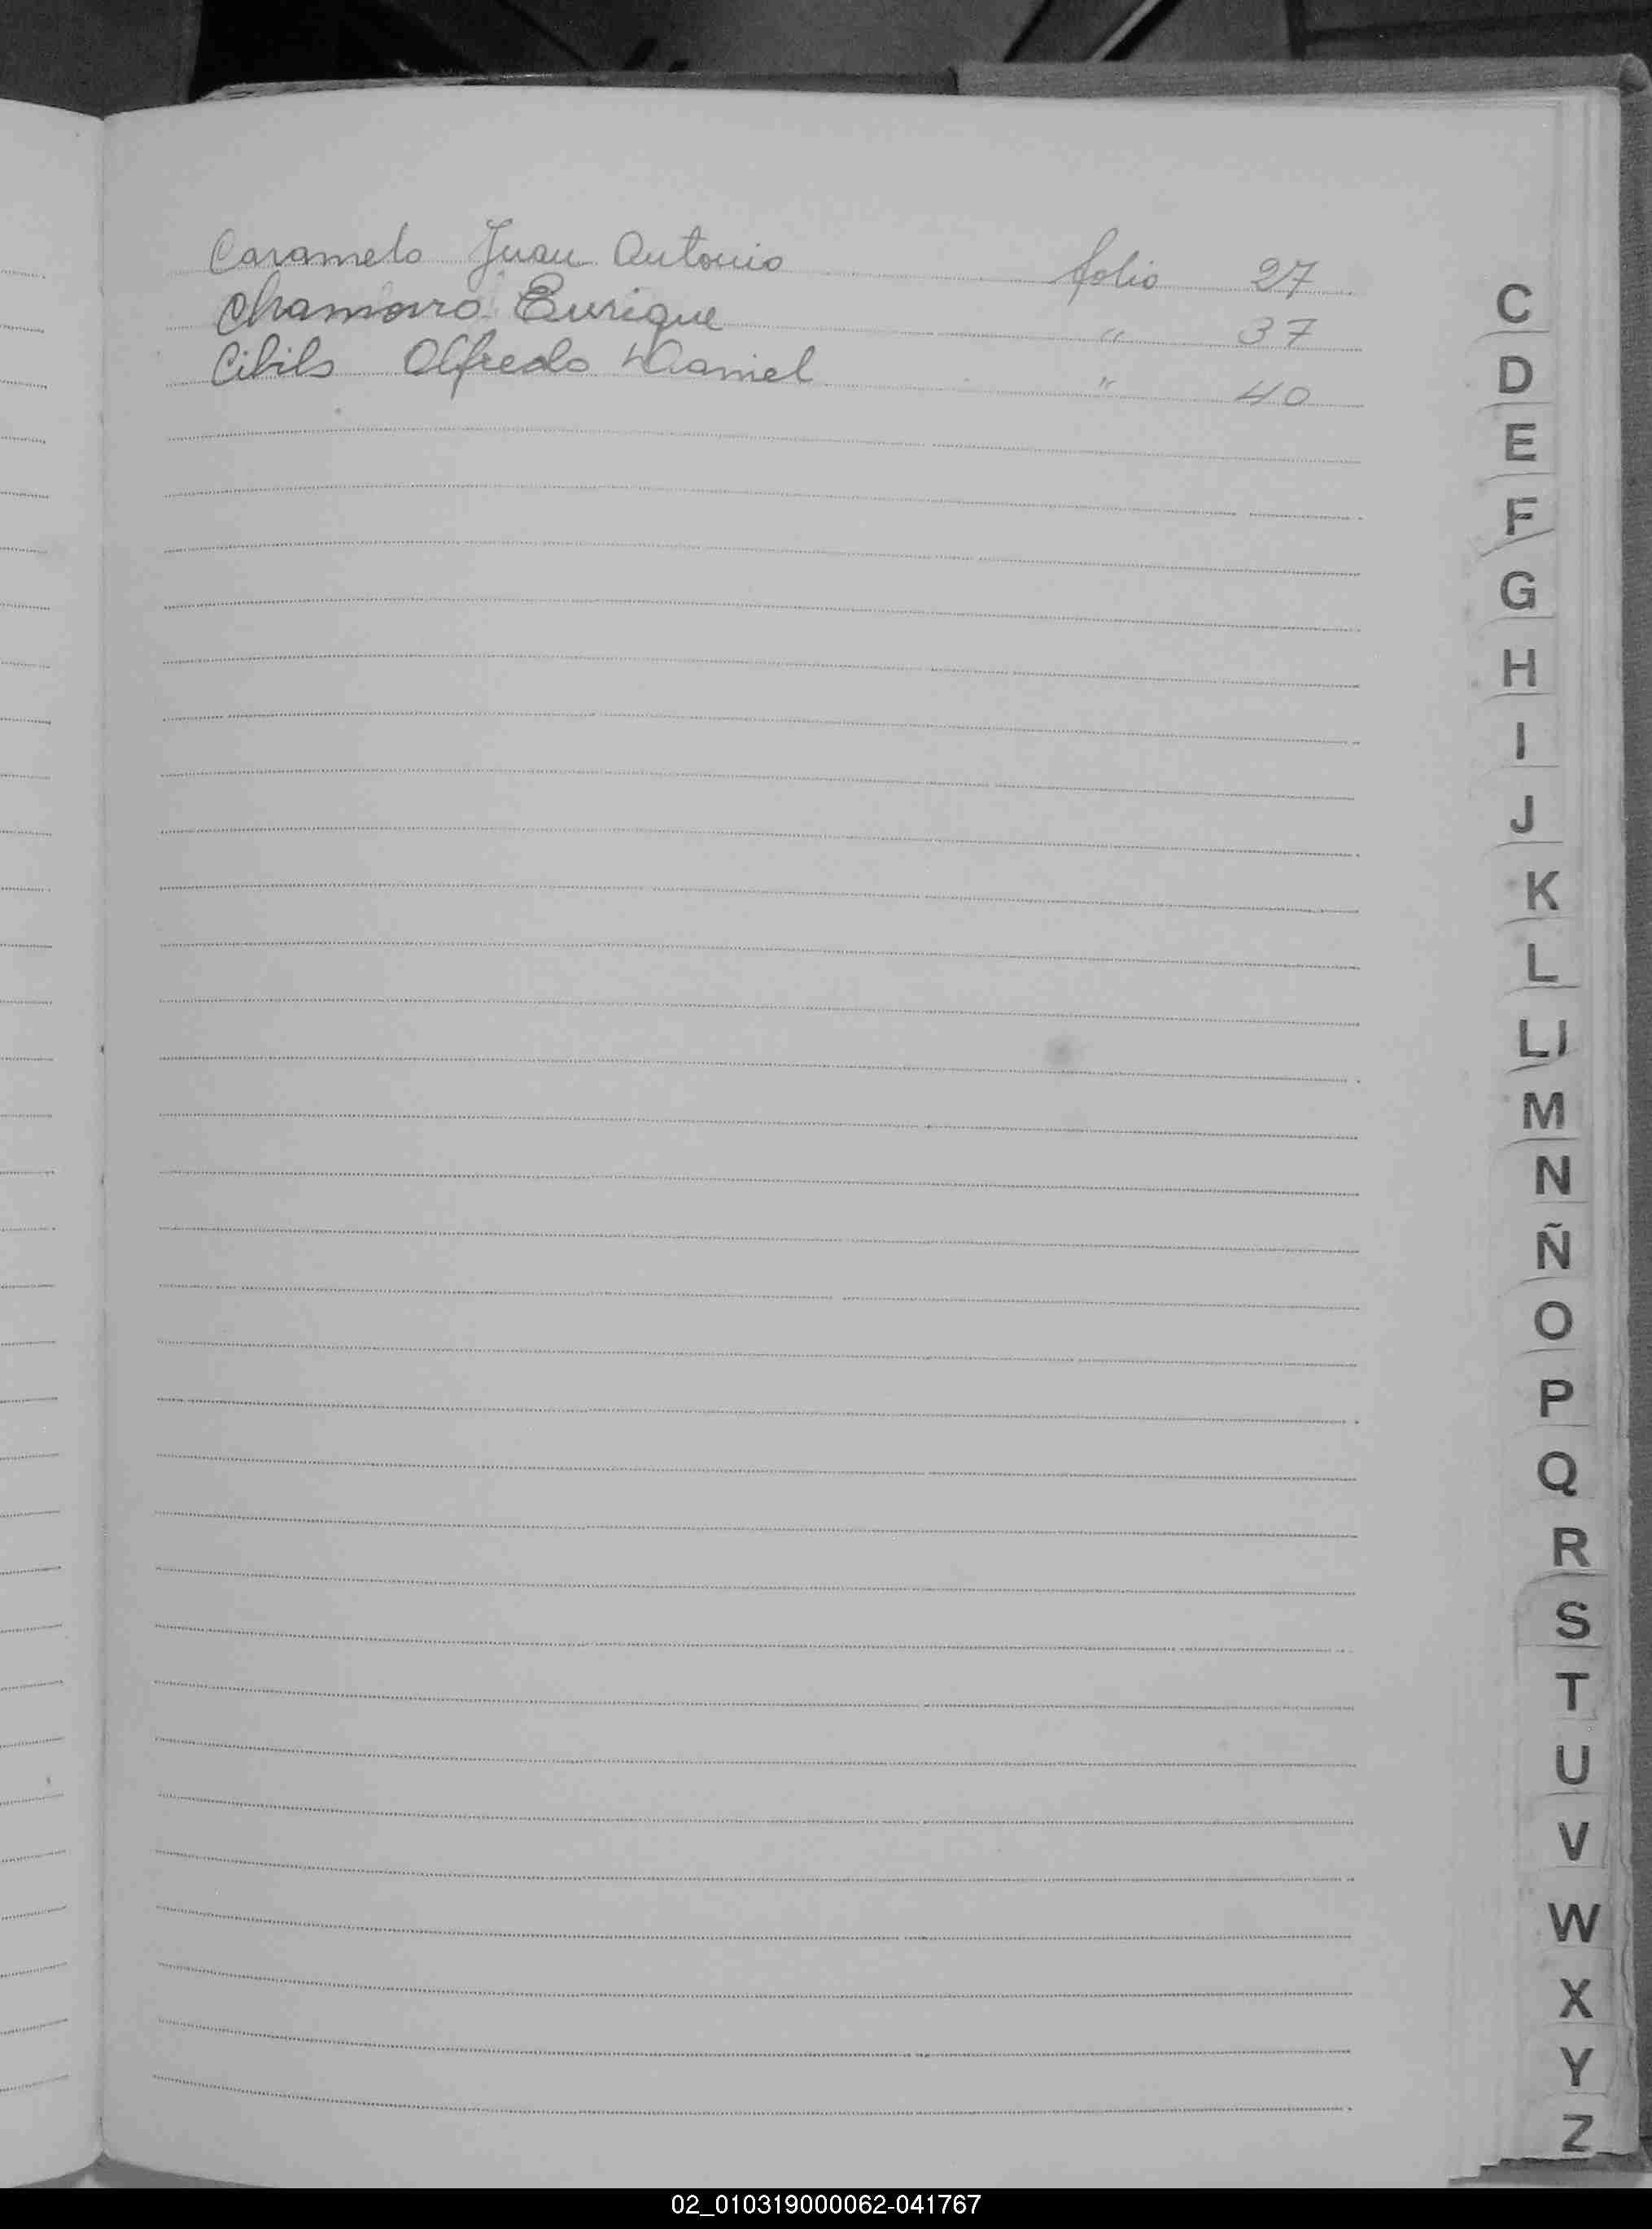 Caramelo Juan Antonio folio 27
Chamorro Enrique " 37
Cibils Alfredo Daniel " 40
C
D
E
F
G
H
I
J
K
L
Ll
M
N
Ñ
O
P
Q
R
S
T
U
V
W
X
Y
Z
02_010319000062-041767